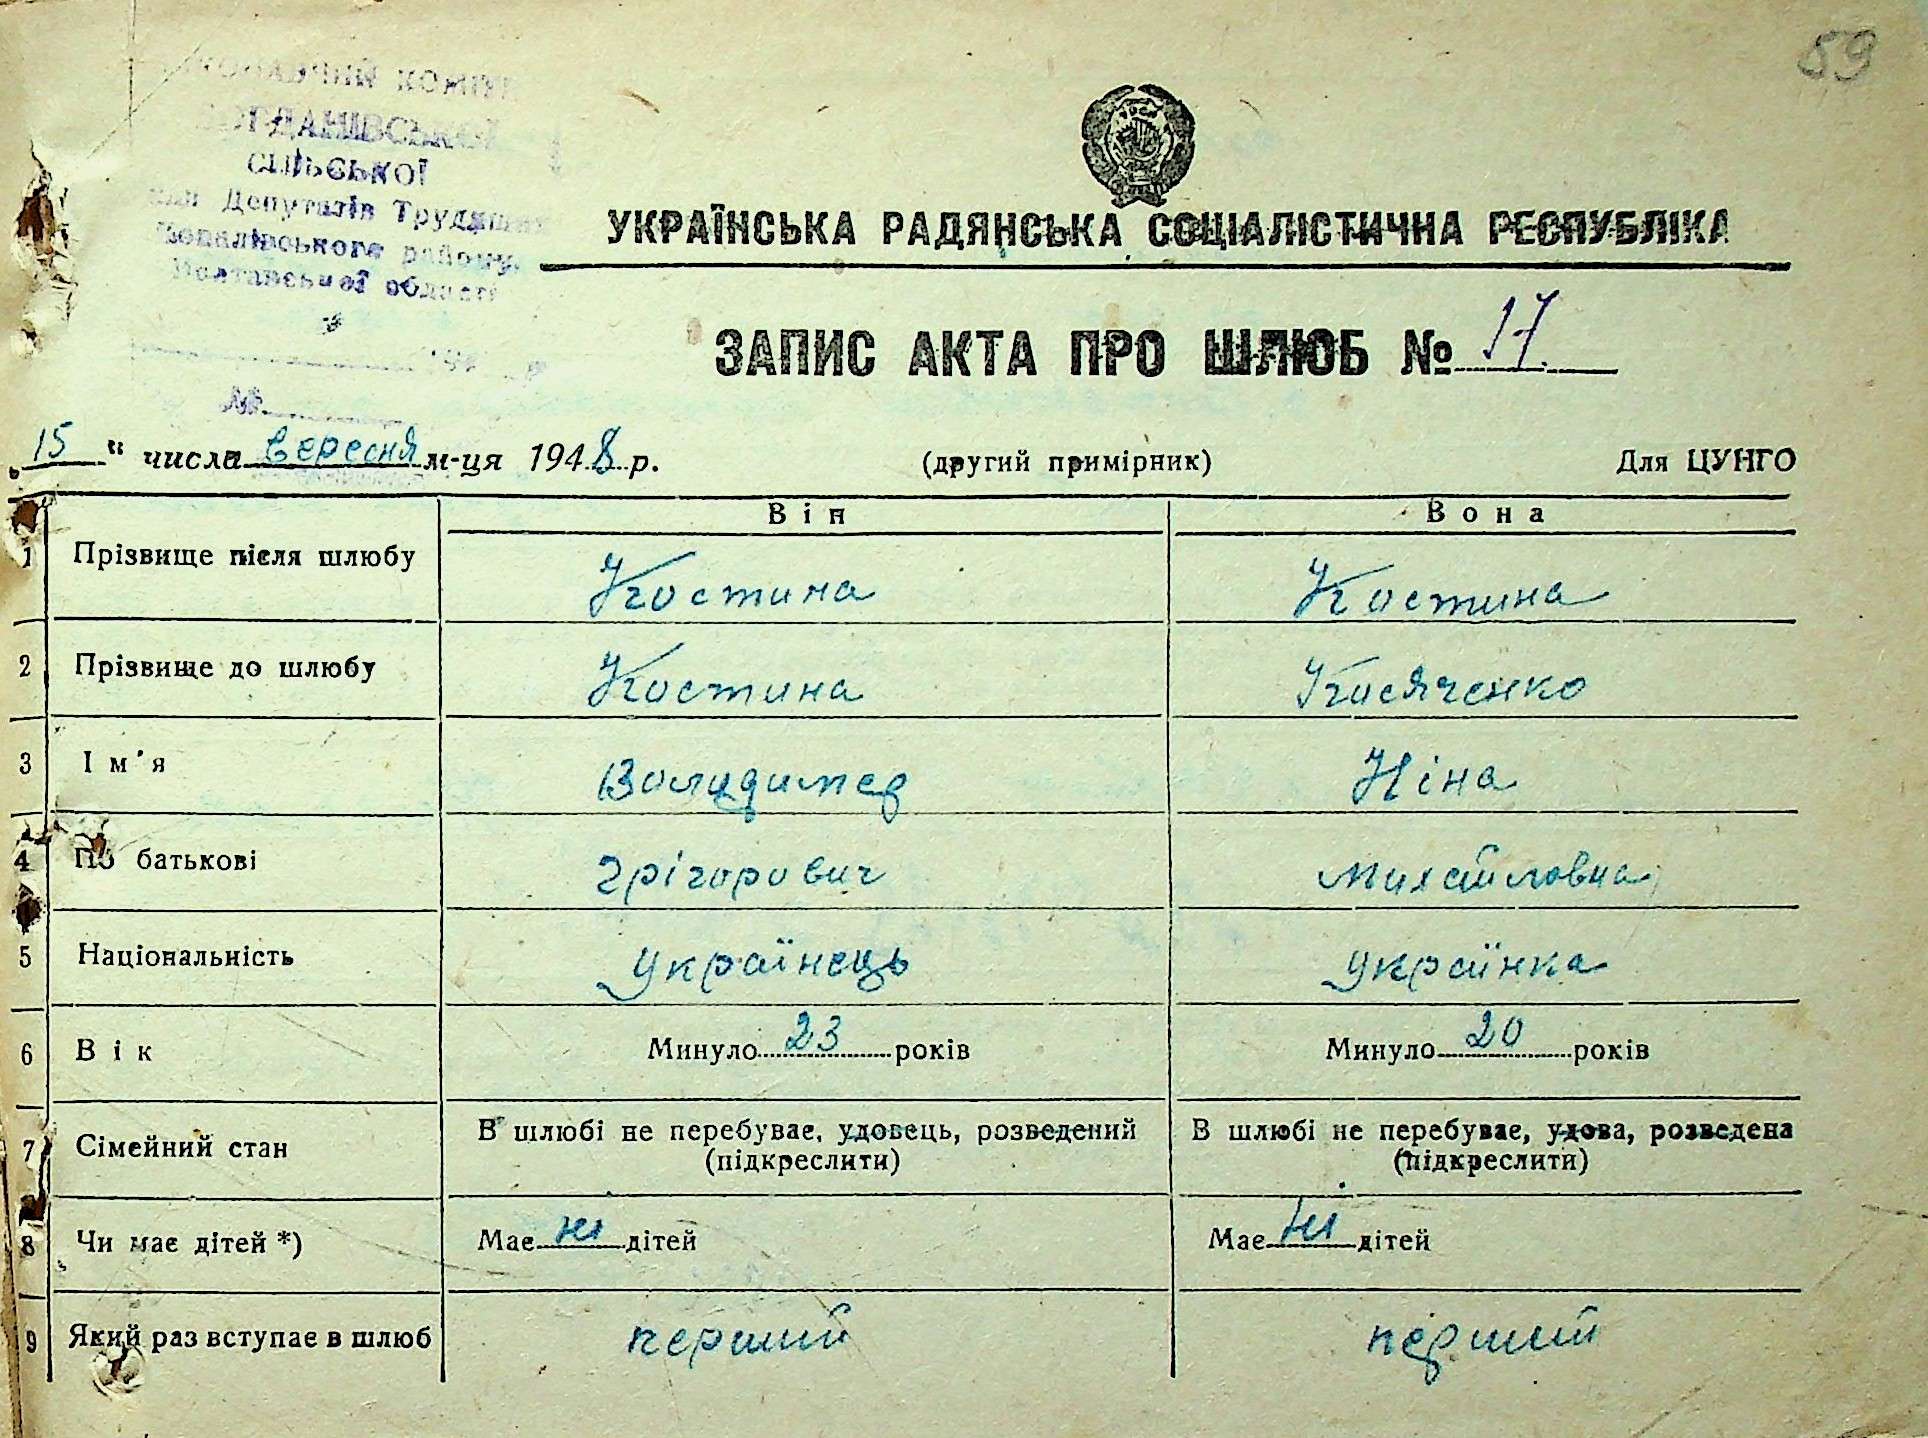 59
КОМІТЕТ
БОГДАНІВСЬКОЇ
СІЛЬСЬКОЇ
Депутатів Трудящих
району
Полтавської області
№
УКРАЇНСЬКА РАДЯНСЬКА СОЦІАЛІСТИЧНА РЕСПУБЛІКА
ЗАПИС АКТА ПРО ШЛЮБ № 17
„15“ числа вересня м-ця 1948 р. (другий примірник) Для ЦУНГО
Він Вона
1 Прізвище після шлюбу Костина Костина
2 Прізвище до шлюбу Костина Косяченко
3 Ім'я Володимер Ніна
4 По батькові Грігорович Михайловна
5 Національність українець українка
6 Вік Минуло 23 років Минуло 20 років
7 Сімейний стан В шлюбі не перебуває, удовець, розведений В шлюбі не перебуває, удова, розведена
(підкреслити) (підкреслити)
8 Чи має дітей *) Має ні дітей Має ні дітей
9 Який раз вступає в шлюб перший перший